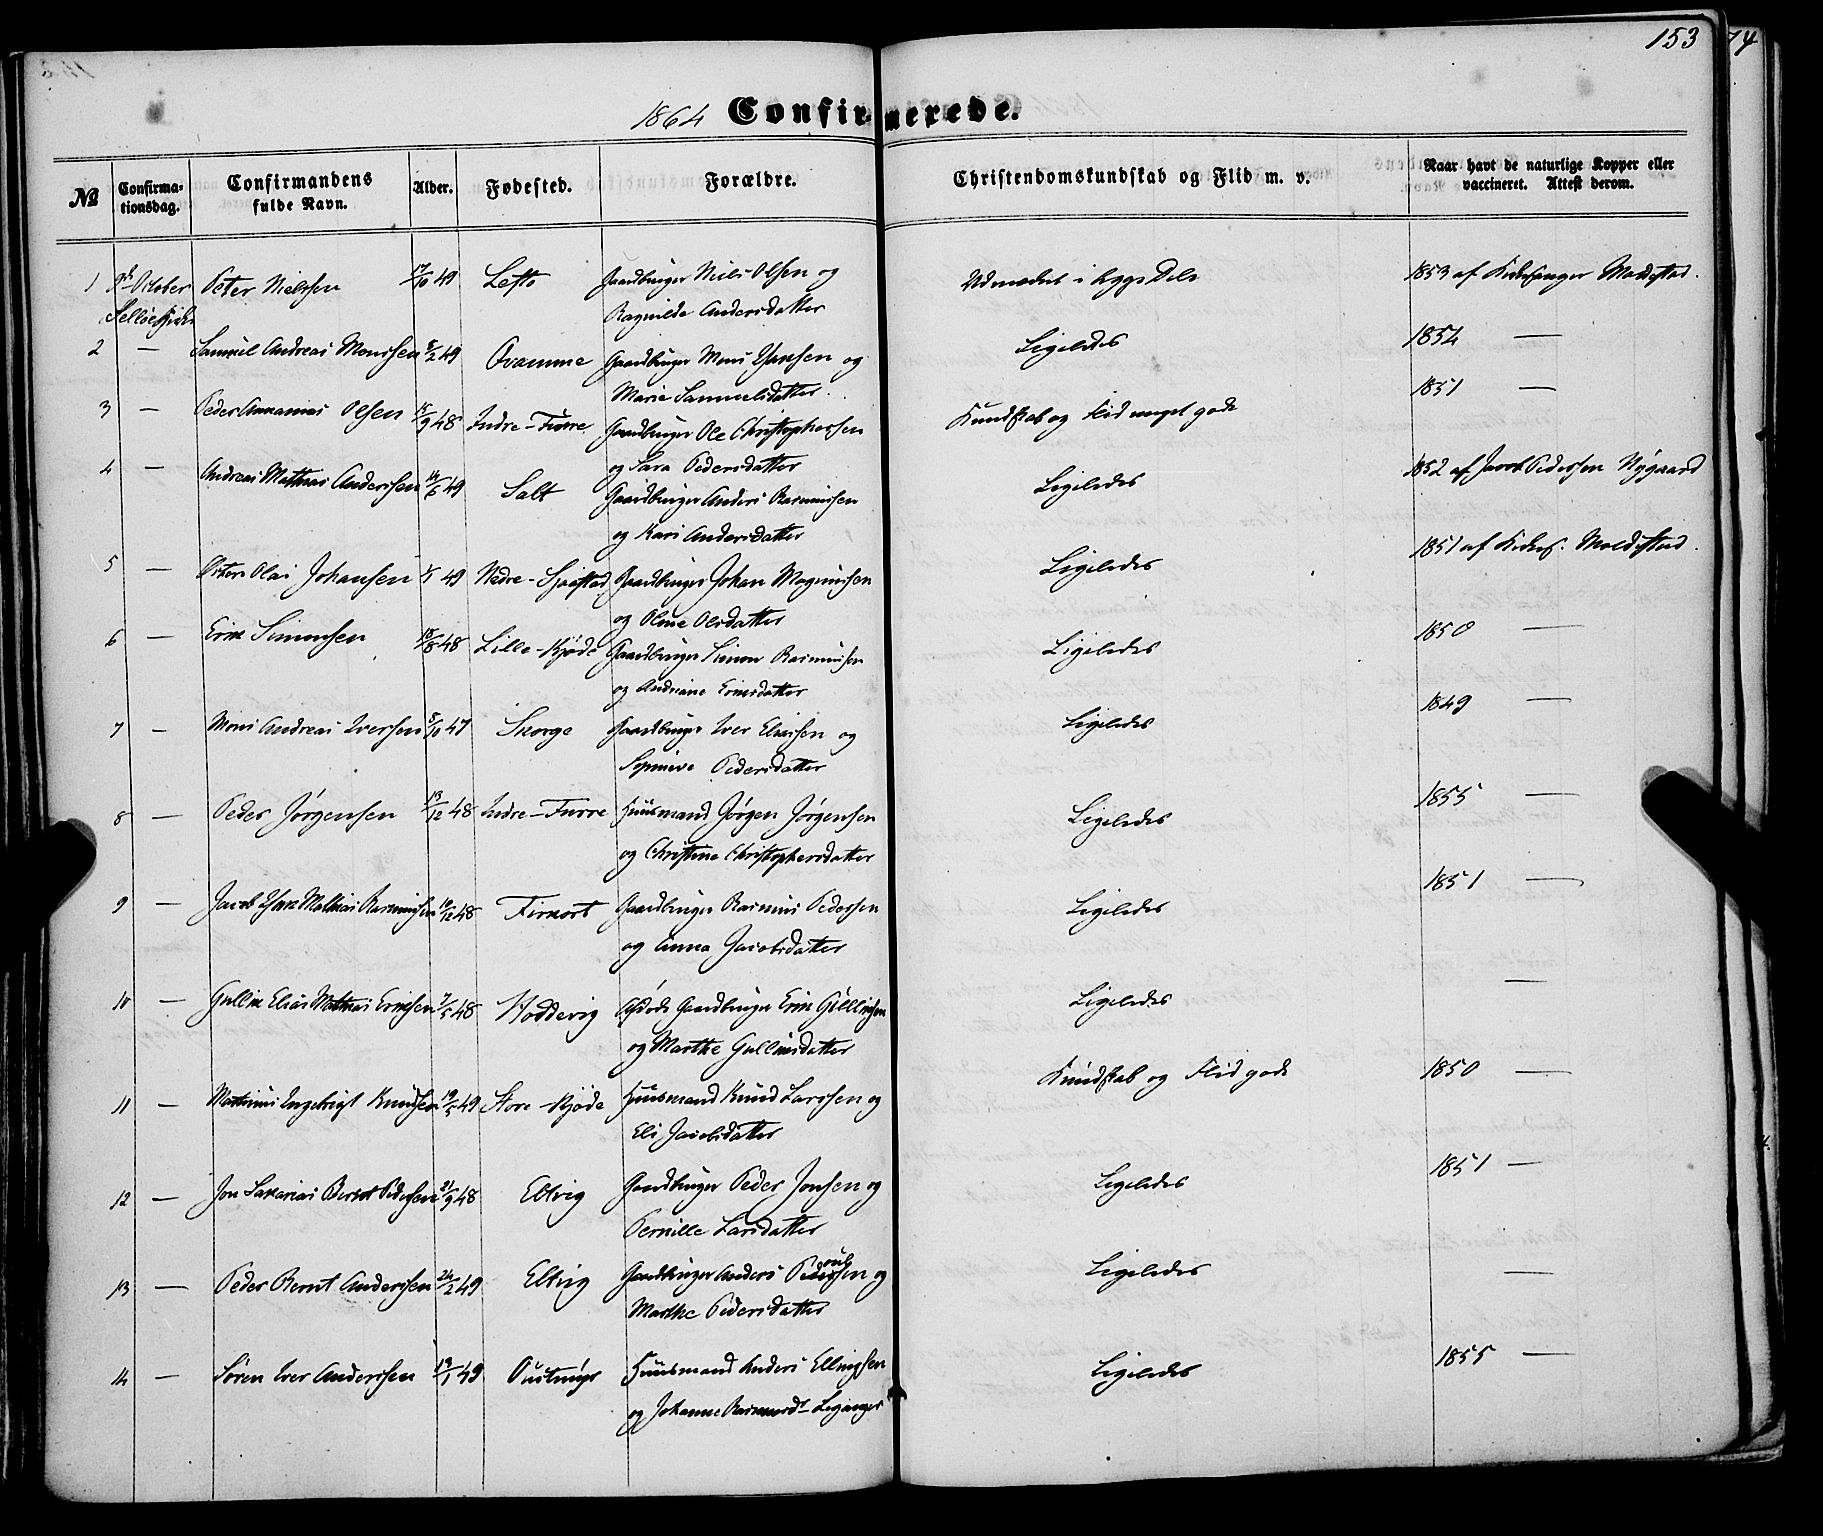 153
1864 Confirmerede.
№ Confirma-tionsdag. Confirmandens fulde Navn. Alder. Fødested. Forældre. Christendomskundskab og Flid m. v. Naar havt de naturlige Kopper eller vaccineret. Attest derom.
1 October Peter Nielssen 17/10 49 Lefto Gaardbruger Niels Olsen og Udmærket i begge Dele 1853 af Kirkesanger Moldestad.
Selløe Kirke Ragnilde Andersdatter
2 — Samuel Andreas Monssen 8/2 49 Qvamme Gaardbruger Mons Hansen og Ligeledes 1854 —
Marie Samuelsdatter
3 — Peder Annanias Olsen 15/9 48 Indre-Furre Gaardbruger Ole Christophersen Kundskab og Flid meget gode 1851 —
og Sara Pedersdatter
4 — Andreas Mathias Anderssen 14/6 49 Salt Gaardbruger Anders Rasmussen Ligeledes 1852 af Jacob Pedersen Nygaard
og Kari Andersdatter
5 — Olai Johansen 49 Nedre-Sjaastad Gaardbruger Johan Magnussen Ligeledes 1851 af Kirkes. Moldestad.
og Oline Olsdatter
6 — Erik Simonsen 18/8 48 Lille-Kjøde Gaardbruger Simon Rasmussen Ligeledes 1850 —
og Andriane Eriksdatter
7 — Mons Andreas Iversen 8/10 47 Skorge Gaardbruger Iver Eliassen og Ligeledes 1849 —
Pedersdatter
8 — Peder Jørgensen 13/12 48 Indre-Furre Huusmand Jørgen Jørgensen Ligeledes 1855 —
og Christine Christophersdatter
9 — Jacob Hans Mathias Rasmussen 10/12 48 Gaardbruger Rasmus Pedersen Ligeledes 1851 —
og Anna Jacobsdatter
10 — Gullik Elias Mathias Eriksen 7/5 48 Hoddevig Afdøde Gaardbruger Erik Gulliksen Ligeledes —
og Marthe Gulliksdatter
11 — Martinus Engebrigt Knudsen 19/5 49 Store-Kjøde Huusmand Knud Larssen og Kundskab og Flid gode 1850 —
Eli Jacobsdatter
12 — Jon Sakarias Berent Pedersen 21/9 48 Eltvig Gaardbruger Peder Jonsen og Ligeledes 1851 —
Pernille Larsdatter
13 — Peder Bernt Anderssen 24/2 49 Eltvig Gaardbruger Anders og Ligeledes —
Marthe Pedersdatter
14 — Søren Iver Anderssen 19/1 49 Huusmand Anders Ellingsen Ligeledes 1855 —
og Johanne Rasmusdt Leganger